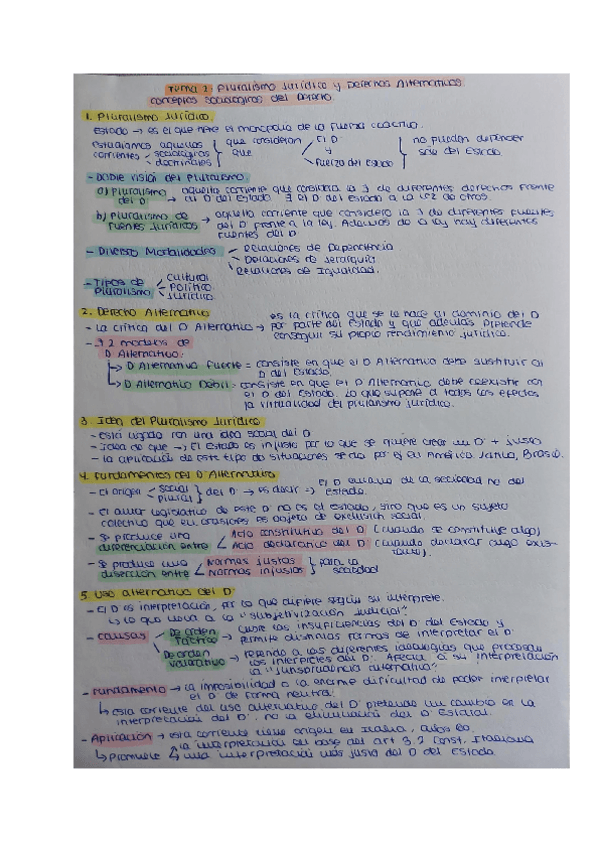 Tema 2: Pluralismo Jurídico y Derechos Alternativos
conceptos sociológicos del Derecho
1. Pluralismo Jurídico.
Estado → es el que tiene el monopolio de la fuerza coactiva.
Estudiamos aquellas corrientes sociológicas doctrinales que consideran que El D y Fuerza del Estado no pueden depender solo del Estado
- Doble visión del Pluralismo.
a) Pluralismo del D. → aquella corriente que considera la ∃ de diferentes derechos frente
al D del Estado. ∃ el D del Estado a la vez de otros.
b) Pluralismo de Fuentes Jurídicas → aquella corriente que considera la ∃ de diferentes fuentes
del D frente a la ley. Además de la ley hay diferentes
fuentes del D.
- Diversas Modalidades Relaciones de Dependencia
Relaciones de Jerarquía
Relaciones de Igualdad.
- Tipos de Pluralismo Cultural
Político
Jurídico.
2. Derecho Alternativo
- La crítica del D Alternativo → es la crítica que se le hace al dominio del D
por parte del Estado y que además pretende
conseguir su propio rendimiento jurídico.
- ∃ 2 modelos de
D Alternativo:
↳ D Alternativo Fuerte = consiste en que el D Alternativo debe sustituir al
D del Estado.
↳ D Alternativo Débil = consiste en que el D Alternativo debe coexistir con
el D del Estado. Lo que supone a todos los efectos
la virtualidad del pluralismo jurídico.
3. Idea del Pluralismo Jurídico
- está ligado con una idea social del D
- idea de que → El Estado es injusto por lo que se quiere crear un D + justo
- la aplicación de este tipo de situaciones se da por ej en América Latina, Brasil.
4. Fundamentos del D Alternativo
- El origen social plural del D → es decir → el D emana de la sociedad no del
Estado.
- El autor legislativo de este D no es el Estado, sino que es un sujeto
colectivo que en ocasiones es objeto de exclusión social.
- Se produce una
diferenciación entre Acto constitutivo del D (cuando se constituye algo)
Acto declarativo del D (cuando declarar algo exis-
tente).
- Se produce una
disección entre Normas justas
Normas injustas para la
sociedad
5. Uso alternativo del D:
- El D es interpretación, por lo que difiere según su intérprete.
↳ lo que lleva a la "subjetivización judicial"
- causas De orden fáctico → cubre las insuficiencias del D del Estado y
permite distintas formas de interpretar el D.
De orden valorativo → referido a las diferentes ideologías que procesan
los intérpretes del D. Afecta a su interpretación
la "jurisprudencia alternativa"
- Fundamento → la imposibilidad o la enorme dificultad de poder interpretar
el D de forma neutral.
↳ esta corriente del uso alternativo del D pretende un cambio en la
interpretación del D, no la eliminación del D Estatal.
- Aplicación → esta corriente tiene origen en Italia, años 60.
la interpretación en base del art 3.2 Const. Italiana
↳ promueve una interpretación más justa del D del Estado